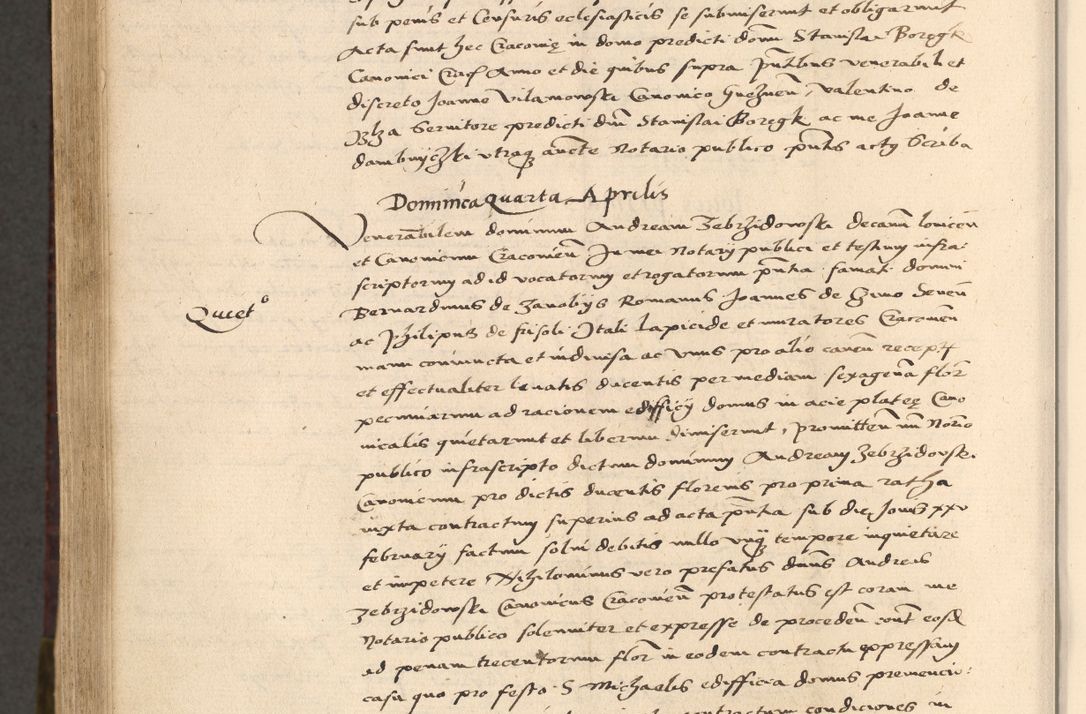 sub penis et Censuris ecclesiasticis se submiserunt et obligarunt
Acta sunt hec Cracovię in domo predicti domi Stanislai Boręgk
Canonici Crac Anno et die quibus supra pñtibus venerabili et
discreto Joanne Vilamowski Canonico Gneznen, Valentino de
Ilza Servitore predicti dñi Stanislai Boręgk ac me Joanne
dambnyczki utraq ancte Notario publico pñtis actq Scriba
Dominica Quarta Aprilis
Venerabilem dominum Andream Zebrzidowski decanū lovicen
et Canonicum Cracovien In mei Notarij publici et testium infra
scriptorum ad id vocatorum et rogatorum pñtia famati domini
Quiet
Bernardinus de Zanobijs Romanus Joannes de
ac Philipus de fisoli Itali Lapicide et muratores Cracovien
manu coniuncta et indivisa ac unus pro alio caven receptis
et effectualiter levatis ducentis per mediam sexagena flor
pecuniarum ad racionem edifficij domus in acie plateę Cano
nicalis quietarunt et liberum dimiserunt, promitten mi Notrio
publico infrascripto dictum dominum Andream Zebrzidovski
Canonicum pro dictis ducentis florenis pro prima ratha
iuxta contractum superius ad acta pñtia sub die Jovis xxv
february factum solvi debitis nullo unq tempore inquietare
et impetere, Nihilominus vero prefatus dñus Andreas
Zebrzidowski Canonicus Cracovien protestatus est coram me
Notario publico solenniter et expresse de proceden cont eosd
ad penam trecentorum flor in eodem contractu expressam
casu quo pro festo S Michaelis edifficia domus premencio:
contractum condiciones in